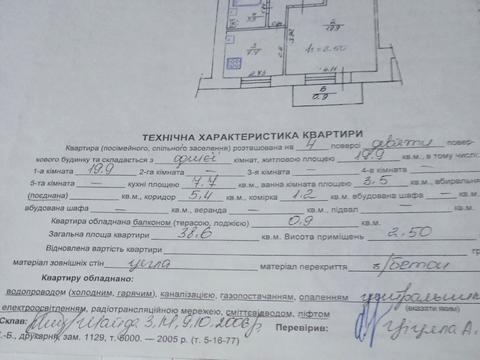 2
19.9
3.90
h=2.50
3
7.7
2.75
Б
0.9
ТЕХНІЧНА ХАРАКТЕРИСТИКА КВАРТИРИ
Квартира (посімейного, спільного заселення) розташована на 4 поверсі девяти повер-
кового будинку та складається з однієї кімнат, житловою площею 19.9 кв.м., в тому числі:
1-а кімната 19.9 2-га кімната — 3-я кімната — 4-е кімната —
5-та кімната — кухні площею 7.7 кв.м., ванна кімната 3.5 кв.м., вбиральня
(поєднана) кв.м., коридор 5.4 кв.м., комірка 1.2 кв.м., вбудована шафа —
вбудована шафа — кв.м., веранда — кв.м., підвал — кв.м.
Квартира обладнана балконом (терасою, лоджією) 0.9 кв.м.
Загальна площа квартири 38.6 кв.м. Висота приміщень 2.50
Відновлена вартість квартири гр
матеріал зовнішніх стін цегла матеріал перекриття з/бетон
Квартиру обладнано:
водопроводом (холодним, гарячим), каналізацією, газопостачанням, опаленням
електроосвітленням, радіотрансляційною мережею, сміттєзводом, ліфтом
(вказати яким)
Склав: 9.10.2006р Перевірив:
-Б., друкарня, зам. 1129, т. 6000. — 2005 р. (т. 5-16-77)